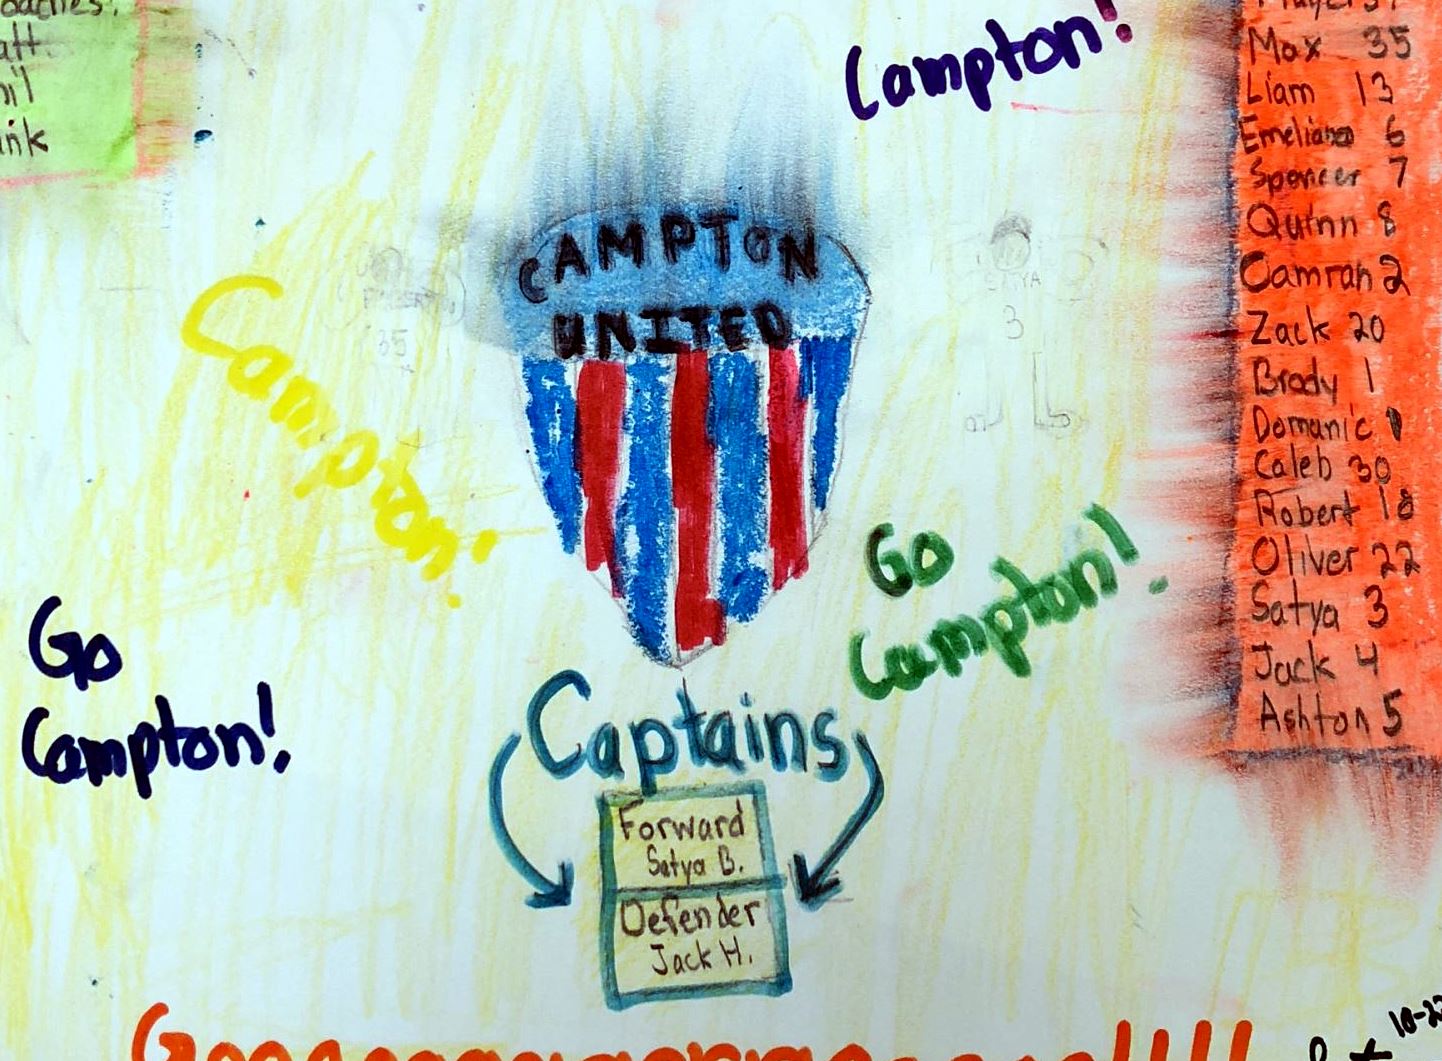 Campton!
Max 35
Liam 13
Emeliano 6
Spencer 7
Quinn 8
Camran 2
Zack 20
Brody 1
Domanic
Caleb 30
Robert 10
Oliver 22
Satya 3
Jack 4
Ashton 5
CAMPTON
UNITED
35
3
Campton!
Go
Campton!
Go
Campton!
Captains
Forward
Satya B.
Defender
Jack H.